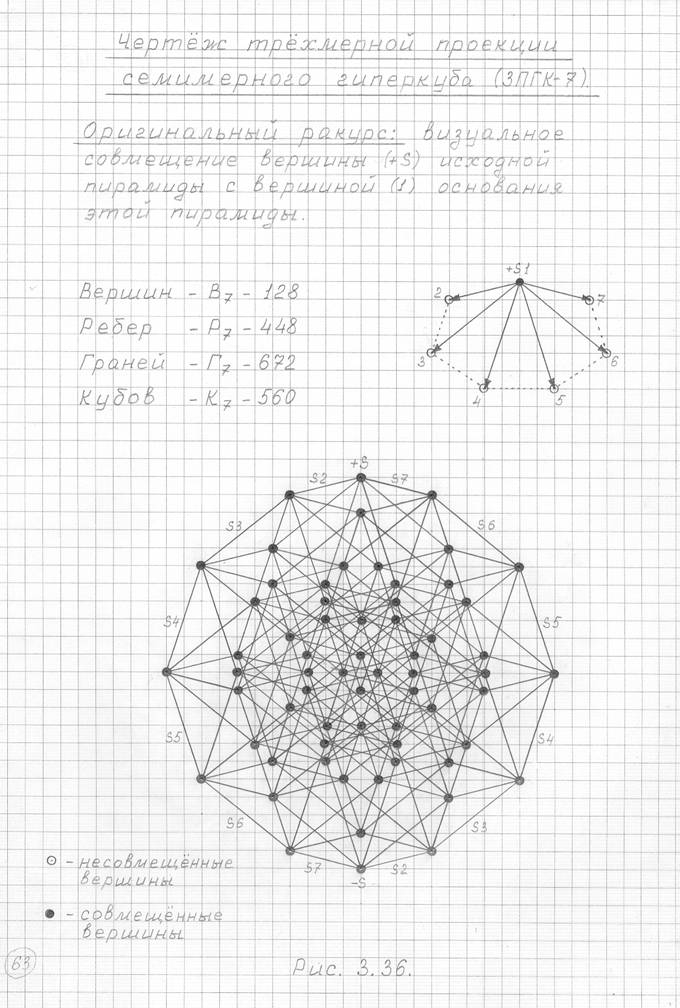 Чертёж трёхмерной проекции
семимерного гиперкуба (3ПГК-7).
Оригинальный ракурс: визуальное
совмещение вершины (+S) исходной
пирамиды с вершиной (1) основания
этой пирамиды.
Вершин - В7 - 128
Ребер - Р7 - 448
Граней - Г7 - 672
Кубов - К7 - 560
+S1
2
7
3
6
4
5
+S
S2
S7
S3
S6
S4
S5
S5
S4
S6
S3
S7
S2
-S
- несовмещённые
вершины
- совмещённые
вершины
63
Рис. 3.36.